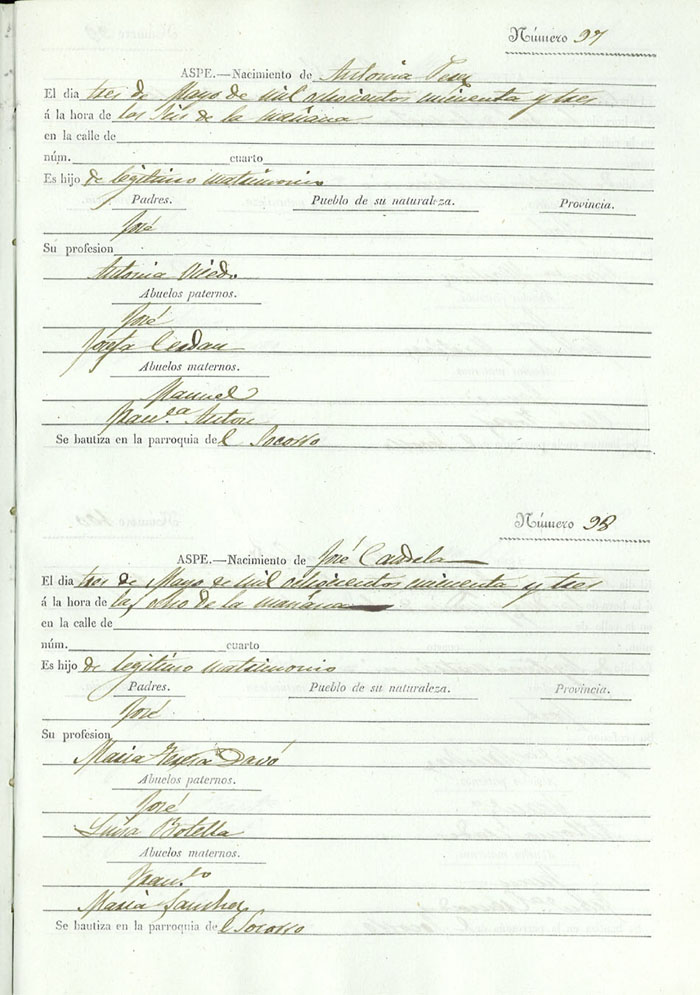 Número 97
ASPE.—Nacimiento de Antonia Perez
El dia tres de Mayo de mil ochocientos cincuenta y tres
á la hora de las seis de la mañana
en la calle de
núm. cuarto
Es hijo de legitimo matrimonio
Padres. Pueblo de su naturaleza. Provincia.
José
Su profesion
Antonia
Abuelos paternos.
José
Josefa Cerdan
Abuelos maternos.
Manuel
Fran.ca Anton
Se bautiza en la parroquia del Socorro
Número 98
ASPE.—Nacimiento de José Candela
El dia tres de Mayo de mil ochocientos cincuenta y tres
á la hora de las ocho de la mañana
en la calle de
núm. cuarto
Es hijo de legitimo matrimonio
Padres. Pueblo de su naturaleza. Provincia.
José
Su profesion
Maria Davó
Abuelos paternos.
José
Luisa Botella
Abuelos maternos.
Fran.co
Maria Sanchez
Se bautiza en la parroquia del Socorro